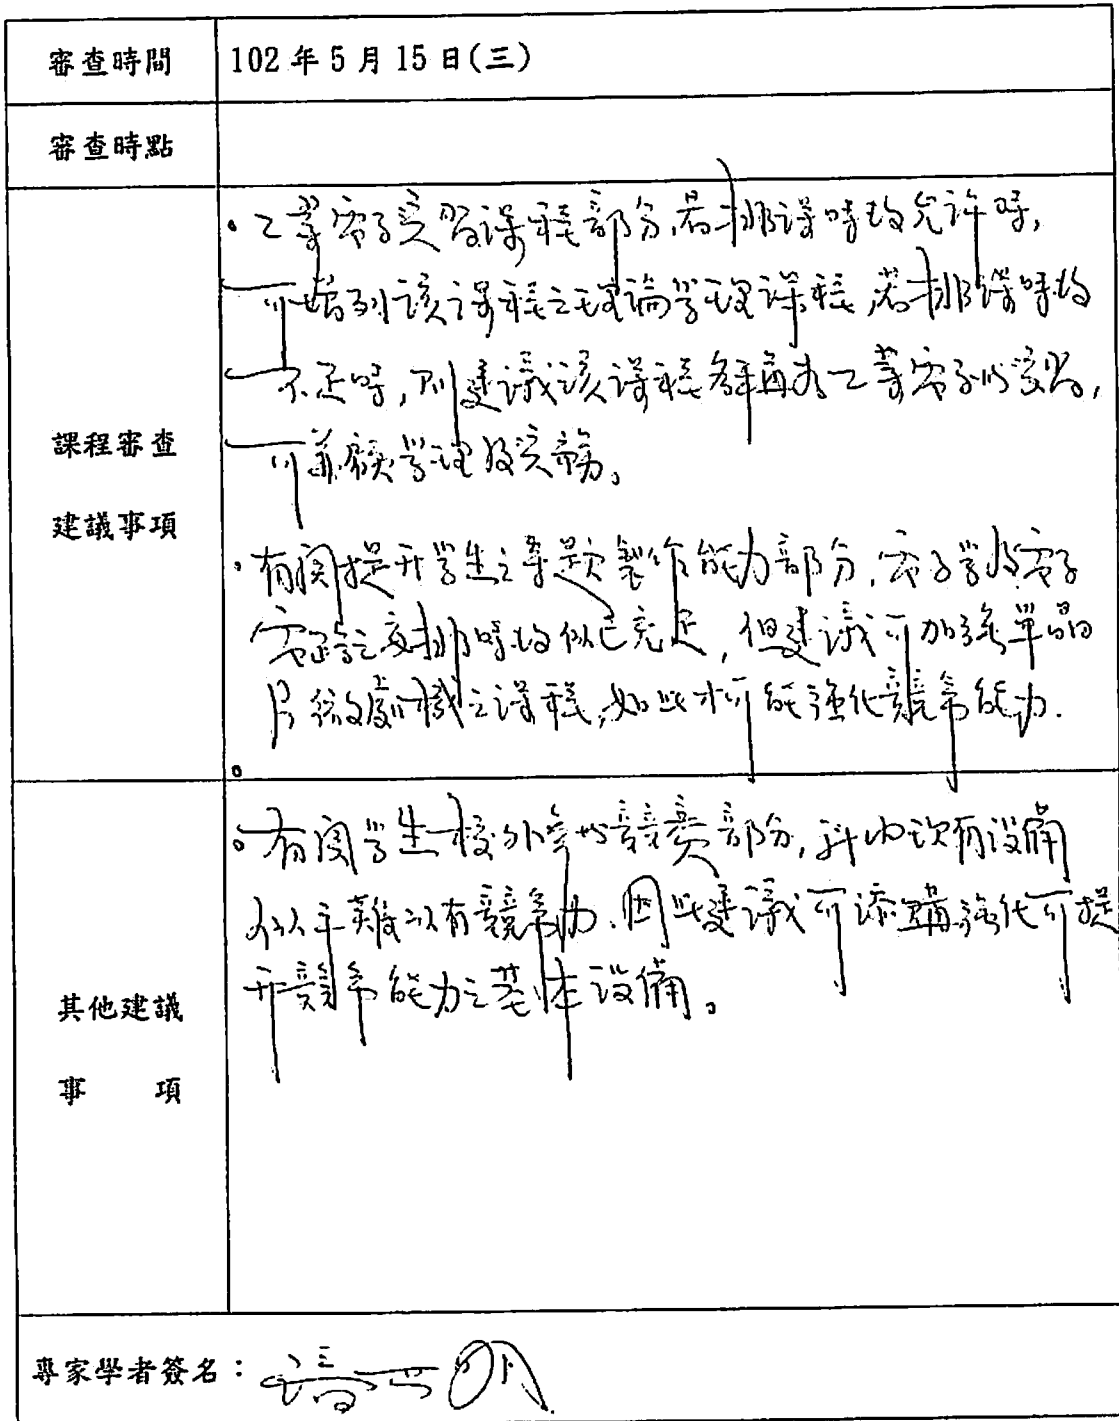 審查時間 102 年 5 月 15 日(三)
審查時點
課程審查
建議事項
•工業電子實習課程部分,若排課時數允許時,
可增列該課程之理論學理課程,若排課時數
不足時,則建議該課程名稱為工業電子的實習,
可兼顧學理及實務。
•有関提升學生之專題製作能力部分,電子學及電子
電路之安排時數似已充足,但建議可加強單晶
片微處理機之課程,如此才可能強化競爭能力.
•有関學生校外參與競賽部分,科內現有設備
似乎難以有競爭力.因此建議可添購強化可提
升競爭能力之基本設備。
其他建議
事 項
專家學者簽名: